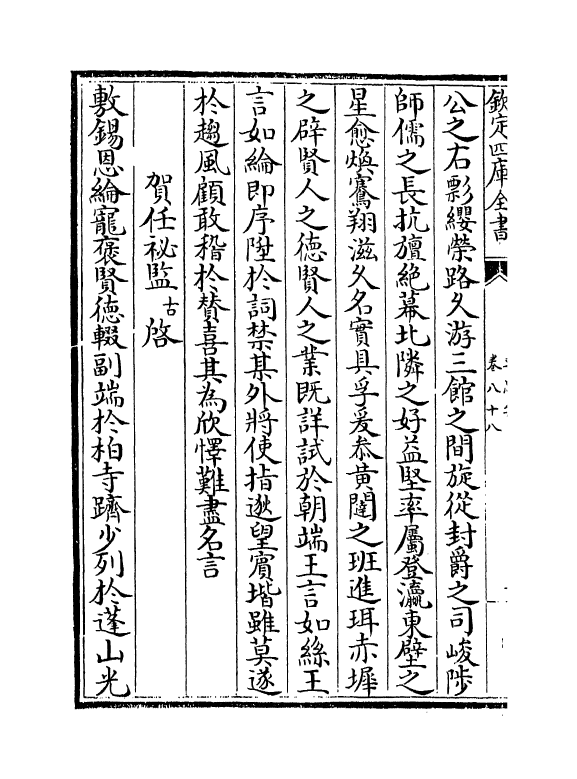 欽定四庫全書
卷八十八
公之右彯纓榮路久游三館之間旋從封爵之司峻陟
師儒之長抗旜絶幕北隣之好益堅率屬登瀛東壁之
星愈煥騫翔滋久名實具孚爰叅黄闥之班進珥赤墀
之辟賢人之徳賢人之業既詳試於朝端王言如絲王
言如綸即序陞於詞禁某外將使指逖望賔堦雖莫遂
於趨風顧敢稽於賛喜其為欣懌難盡名言
賀任祕監古啓
敷錫恩綸寵褒賢徳輟副端於柏寺躋少列於蓬山光